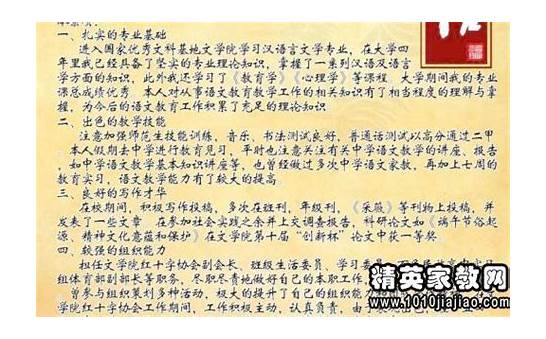 一、扎实的专业基础
进入国家优秀文科基地文学院学习汉语言文学专业，在大学四
年里我已经具备了坚实的专业理论知识，掌握了一系列汉语及语言
学方面的知识，此外我还学习了《教育学》《心理学》等课程 大学期间我的专业
课总成绩优秀 本人对从事语文教育教学工作的相关知识有了相当程度的理解与掌
握，为今后的语文教育工作积累了充足的理论知识
二、出色的教学技能
注意加强师范生技能训练，音乐、书法测试良好，普通话测试以高分通过二甲
本人假期去中学进行教育见习，平时也注意关注有关中学语文教学的讲座、报告
，如中学语文教学基本知识讲座等，也曾经做过多次中学语文家教，再加上七周的
教育实习，语文教学能力有了较大的提高
三、良好的写作才华
在校期间，积极写作投稿，多次在班刊，年级刊，《采薇》等刊物上投稿，并
发表了一些文章 在参加社会实践之余并上交调查报告，科研论文如《端午节俗起
源、精神文化意蕴和保护》在文学院第十届“创新杯”论文中获一等奖
四、较强的组织能力
担任文学院红十字协会副会长、班级生活委员、学习委
组体育部副部长等职务，尽职尽责地做好自己的本职工作
曾参与组织策划多种活动，极大的提升了自己的组织能力
学院红十字协会工作期间，工作积极主动，认真负责，由于
精英家教网
www.1010jiajiao.com